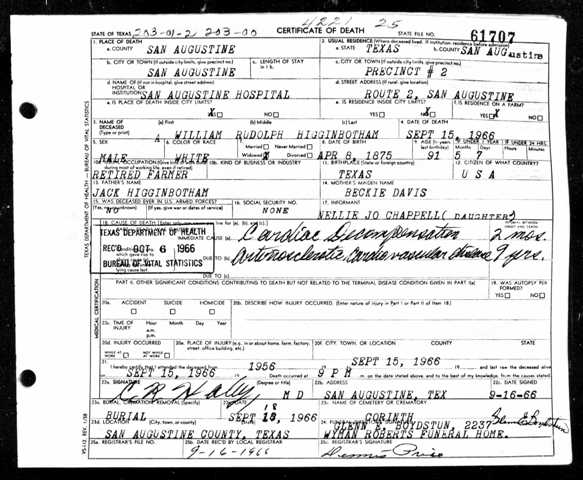 4221 25
STATE OF TEXAS 203-01-2 203-00 CERTIFICATE OF DEATH STATE FILE NO. 61707
1. PLACE OF DEATH
a. COUNTY SAN AUGUSTINE
2. USUAL RESIDENCE (Where deceased lived. If institution: residence before admission)
a. STATE TEXAS b. COUNTY SAN AUGustine
b. CITY OR TOWN (If outside city limits, give precinct no.)
SAN AUGUSTINE
c. LENGTH OF STAY in 1 b.
c. CITY OR TOWN (If outside city limits, give precinct no.)
PRECINCT # 2
d. NAME OF (If not in hospital, give street address)
HOSPITAL OR
INSTITUTION SAN AUGUSTINE HOSPITAL
d. STREET ADDRESS (If rural, give location)
ROUTE 2, SAN AUGUSTINE
e. IS PLACE OF DEATH INSIDE CITY LIMITS?
YES X NO
e. IS RESIDENCE INSIDE CITY LIMITS?
YES NO X
f. IS RESIDENCE ON A FARM?
YES X NO
3. NAME OF DECEASED (Type or print)
(a) First (b) Middle (c) Last
WILLIAM RUDOLPH HIGGINBOTHAM
4. DATE OF DEATH
SEPT 15, 1966
5. SEX
MALE
6. COLOR OR RACE
WHITE
7. Married Never Married
Widowed X Divorced
8. DATE OF BIRTH
APR 8 1875
9. AGE (In years last birthday)
91
IF UNDER 1 YEAR IF UNDER 24 HRS.
5 7
during most of working life, even if retired)
RETIRED FARMER
10b. KIND OF BUSINESS OR INDUSTRY
11. BIRTHPLACE (State or foreign country)
TEXAS
12. CITIZEN OF WHAT COUNTRY?
U S A
13. FATHER'S NAME
JACK HIGGINBOTHAM
14. MOTHER'S MAIDEN NAME
BECKIE DAVIS
15. WAS DECEASED EVER IN U.S. ARMED FORCES?
NO
16. SOCIAL SECURITY NO.
NONE
17. INFORMANT
NELLIE JO CHAPPELL( DAUGHTER)
18. CAUSE OF DEATH
TEXAS DEPARTMENT OF HEALTH
REC'D OCT 6 1966
BUREAU OF VITAL STATISTICS
Cardiac Decompensation 2 mos.
DUE TO (b) Arteriosclerotic Cardio vascular disease 9 yrs.
lying cause last. DUE TO (c)
PART II. OTHER SIGNIFICANT CONDITIONS CONTRIBUTING TO DEATH BUT NOT RELATED TO THE TERMINAL DISEASE CONDITION GIVEN IN PART I(a)
19. WAS AUTOPSY PERFORMED?
YES NO
20a. ACCIDENT SUICIDE HOMICIDE
20b. DESCRIBE HOW INJURY OCCURRED. (Enter nature of injury in Part I or Part II of item 18)
20c. TIME OF INJURY Hour Month Day Year
a.m.
p.m.
20d. INJURY OCCURRED
WHILE AT WORK NOT WHILE AT WORK
20e. PLACE OF INJURY (e.g. in or about home, farm, factory, street, office building, etc.)
20f. CITY, TOWN, OR LOCATION COUNTY STATE
21. I hereby certify that I attended the deceased from 1956 to SEPT 15, 1966 and last saw the deceased
alive on SEPT 15, 1966 Death occurred at 9 P M on the date stated above, and to the best of my knowledge, from the causes stated.
22a. SIGNATURE (Degree or title)
M D
22b. ADDRESS
SAN AUGUSTINE, TEX
22c. DATE SIGNED
9-16-66
23a. BURIAL, CREMATION, REMOVAL (Specify)
BURIAL
23b. DATE
SEPT 18, 1966
23c. NAME OF CEMETERY OR CREMATORY
CORINTH
23d. LOCATION (City, town, or county) (State)
SAN AUGUSTINE COUNTY, TEXAS
GLENN E. BOYDSTUN, 2237
WYMAN ROBERTS FUNERAL HOME.
25a. REGISTRAR'S FILE NO.
25b. DATE REC'D BY LOCAL REGISTRAR
9-16-1966
25c. REGISTRAR'S SIGNATURE
Dennis Price
TEXAS DEPARTMENT OF HEALTH — BUREAU OF VITAL STATISTICS
MEDICAL CERTIFICATION